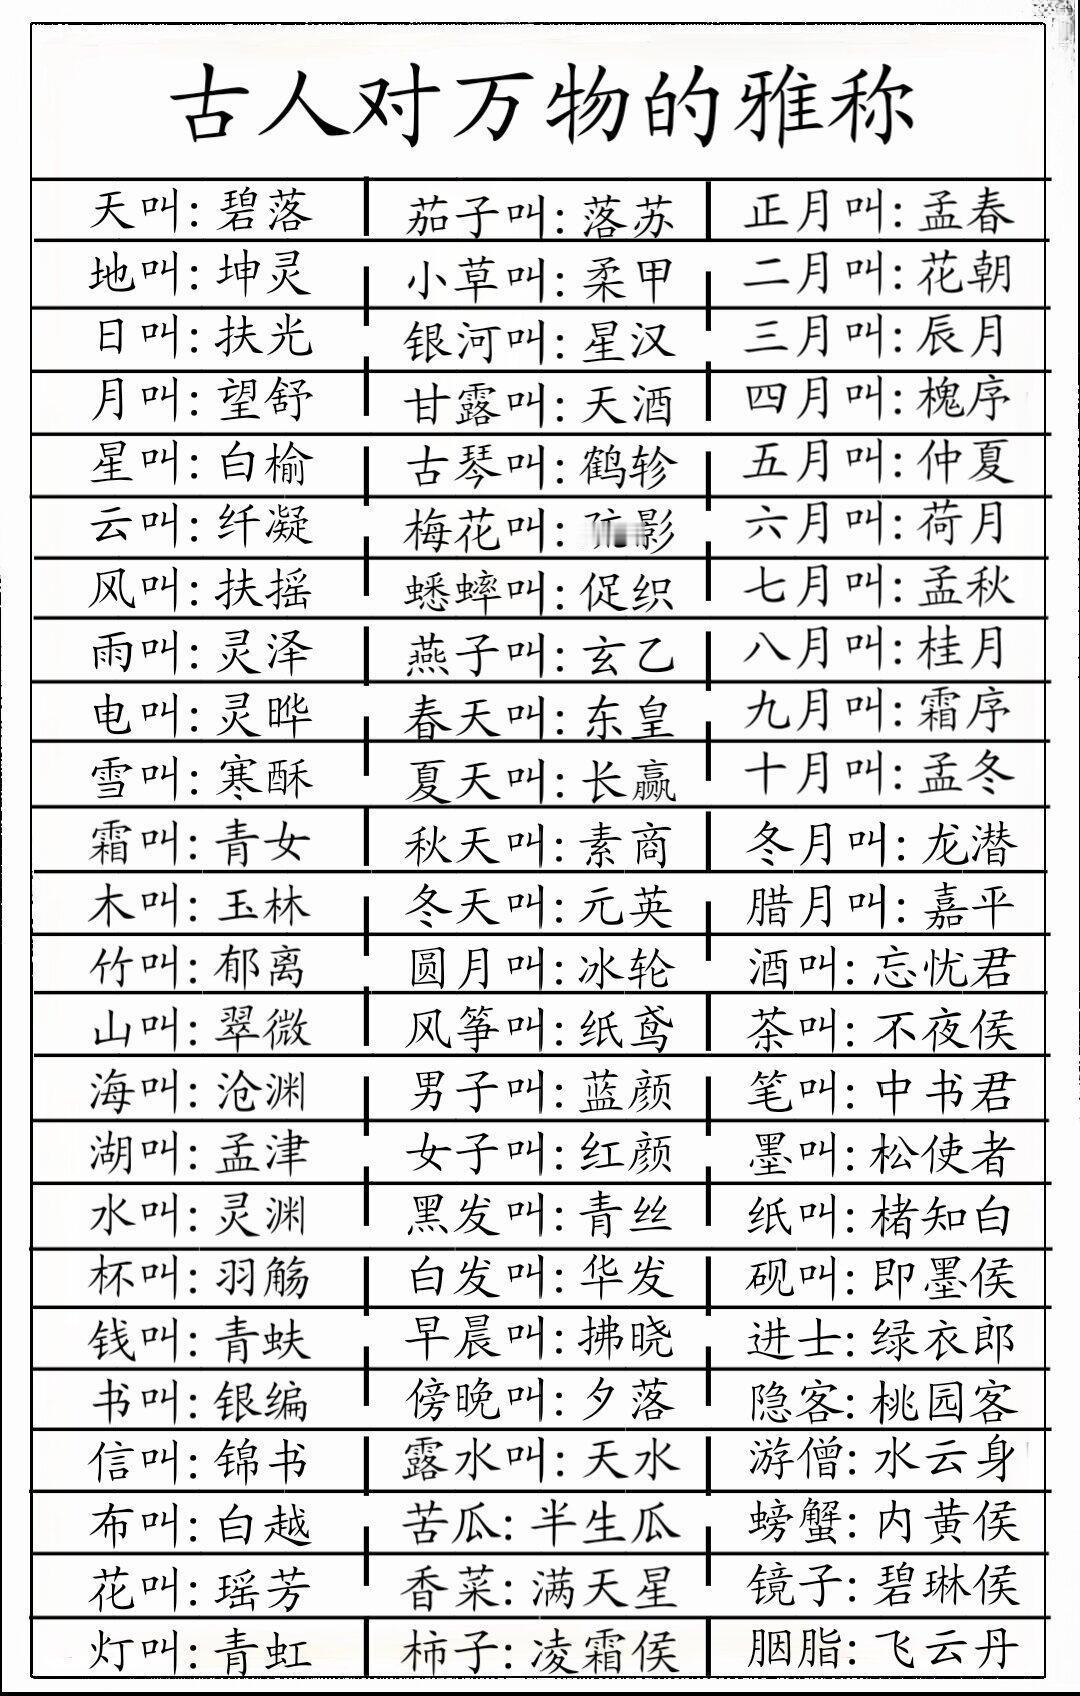 古人对万物的雅称
天叫：碧落 茄子叫：落苏 正月叫：孟春
地叫：坤灵 小草叫：柔甲 二月叫：花朝
日叫：扶光 银河叫：星汉 三月叫：辰月
月叫：望舒 甘露叫：天酒 四月叫：槐序
星叫：白榆 古琴叫：鹤轸 五月叫：仲夏
云叫：纤凝 梅花叫：影 六月叫：荷月
风叫：扶摇 蟋蟀叫：促织 七月叫：孟秋
雨叫：灵泽 燕子叫：玄乙 八月叫：桂月
电叫：灵晔 春天叫：东皇 九月叫：霜序
雪叫：寒酥 夏天叫：长赢 十月叫：孟冬
霜叫：青女 秋天叫：素商 冬月叫：龙潜
木叫：玉林 冬天叫：元英 腊月叫：嘉平
竹叫：郁离 圆月叫：冰轮 酒叫：忘忧君
山叫：翠微 风筝叫：纸鸢 茶叫：不夜侯
海叫：沧渊 男子叫：蓝颜 笔叫：中书君
湖叫：孟津 女子叫：红颜 墨叫：松使者
水叫：灵渊 黑发叫：青丝 纸叫：楮知白
杯叫：羽觞 白发叫：华发 砚叫：即墨侯
钱叫：青蚨 早晨叫：拂晓 进士：绿衣郎
书叫：银编 傍晚叫：夕落 隐客：桃园客
信叫：锦书 露水叫：天水 游僧：水云身
布叫：白越 苦瓜：半生瓜 螃蟹：内黄侯
花叫：瑶芳 香菜：满天星 镜子：碧琳侯
灯叫：青虹 柿子：凌霜侯 胭脂：飞云丹